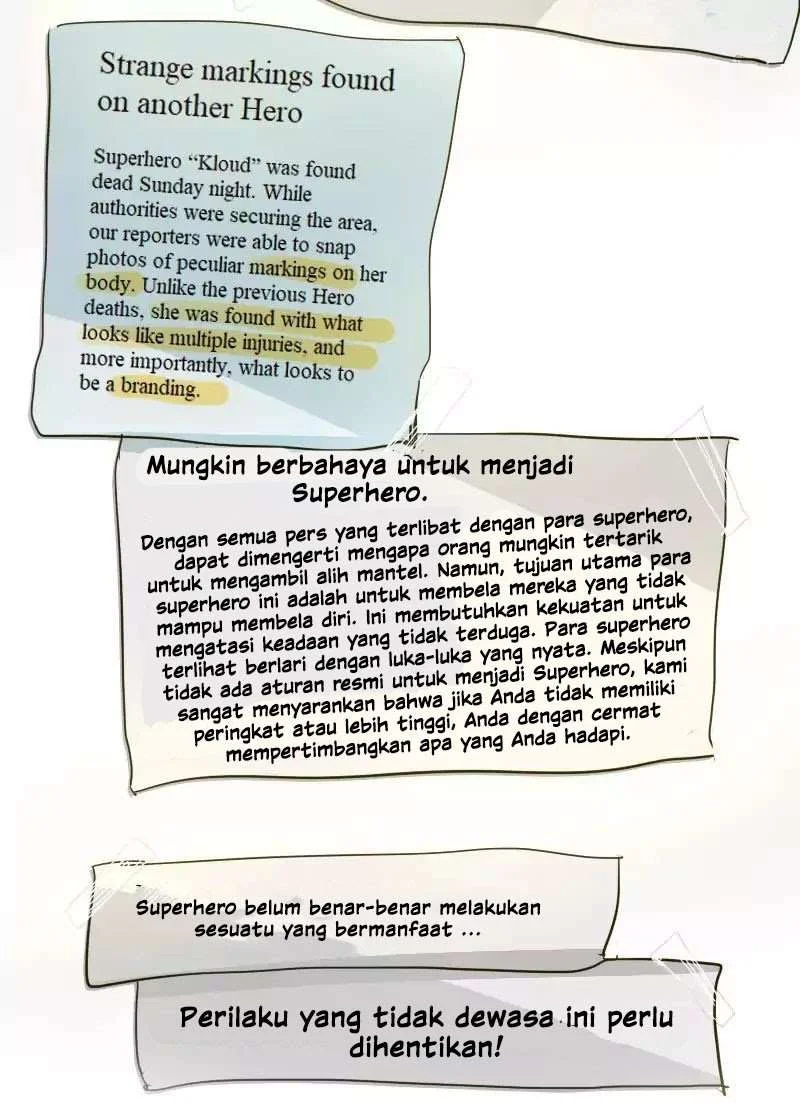 Strange markings found
on another Hero
Superhero “Kloud” was found
dead Sunday night. While
authorities were securing the area,
our reporters were able to snap
photos of peculiar markings on her
body. Unlike the previous Hero
deaths, she was found with what
looks like multiple injuries, and
more importantly, what looks to
be a branding.
Mungkin berbahaya untuk menjadi
Superhero.
Dengan semua pers yang terlibat dengan para superhero,
dapat dimengerti mengapa orang mungkin tertarik
untuk mengambil alih mantel. Namun, tujuan utama para
superhero ini adalah untuk membela mereka yang tidak
mampu membela diri. Ini membutuhkan kekuatan untuk
mengatasi keadaan yang tidak terduga. Para superhero
terlihat berlari dengan luka-luka yang nyata. Meskipun
tidak ada aturan resmi untuk menjadi Superhero, kami
sangat menyarankan bahwa jika Anda tidak memiliki
peringkat atau lebih tinggi, Anda dengan cermat
mempertimbangkan apa yang Anda hadapi.
Superhero belum benar-benar melakukan
sesuatu yang bermanfaat ...
Perilaku yang tidak dewasa ini perlu
dihentikan!